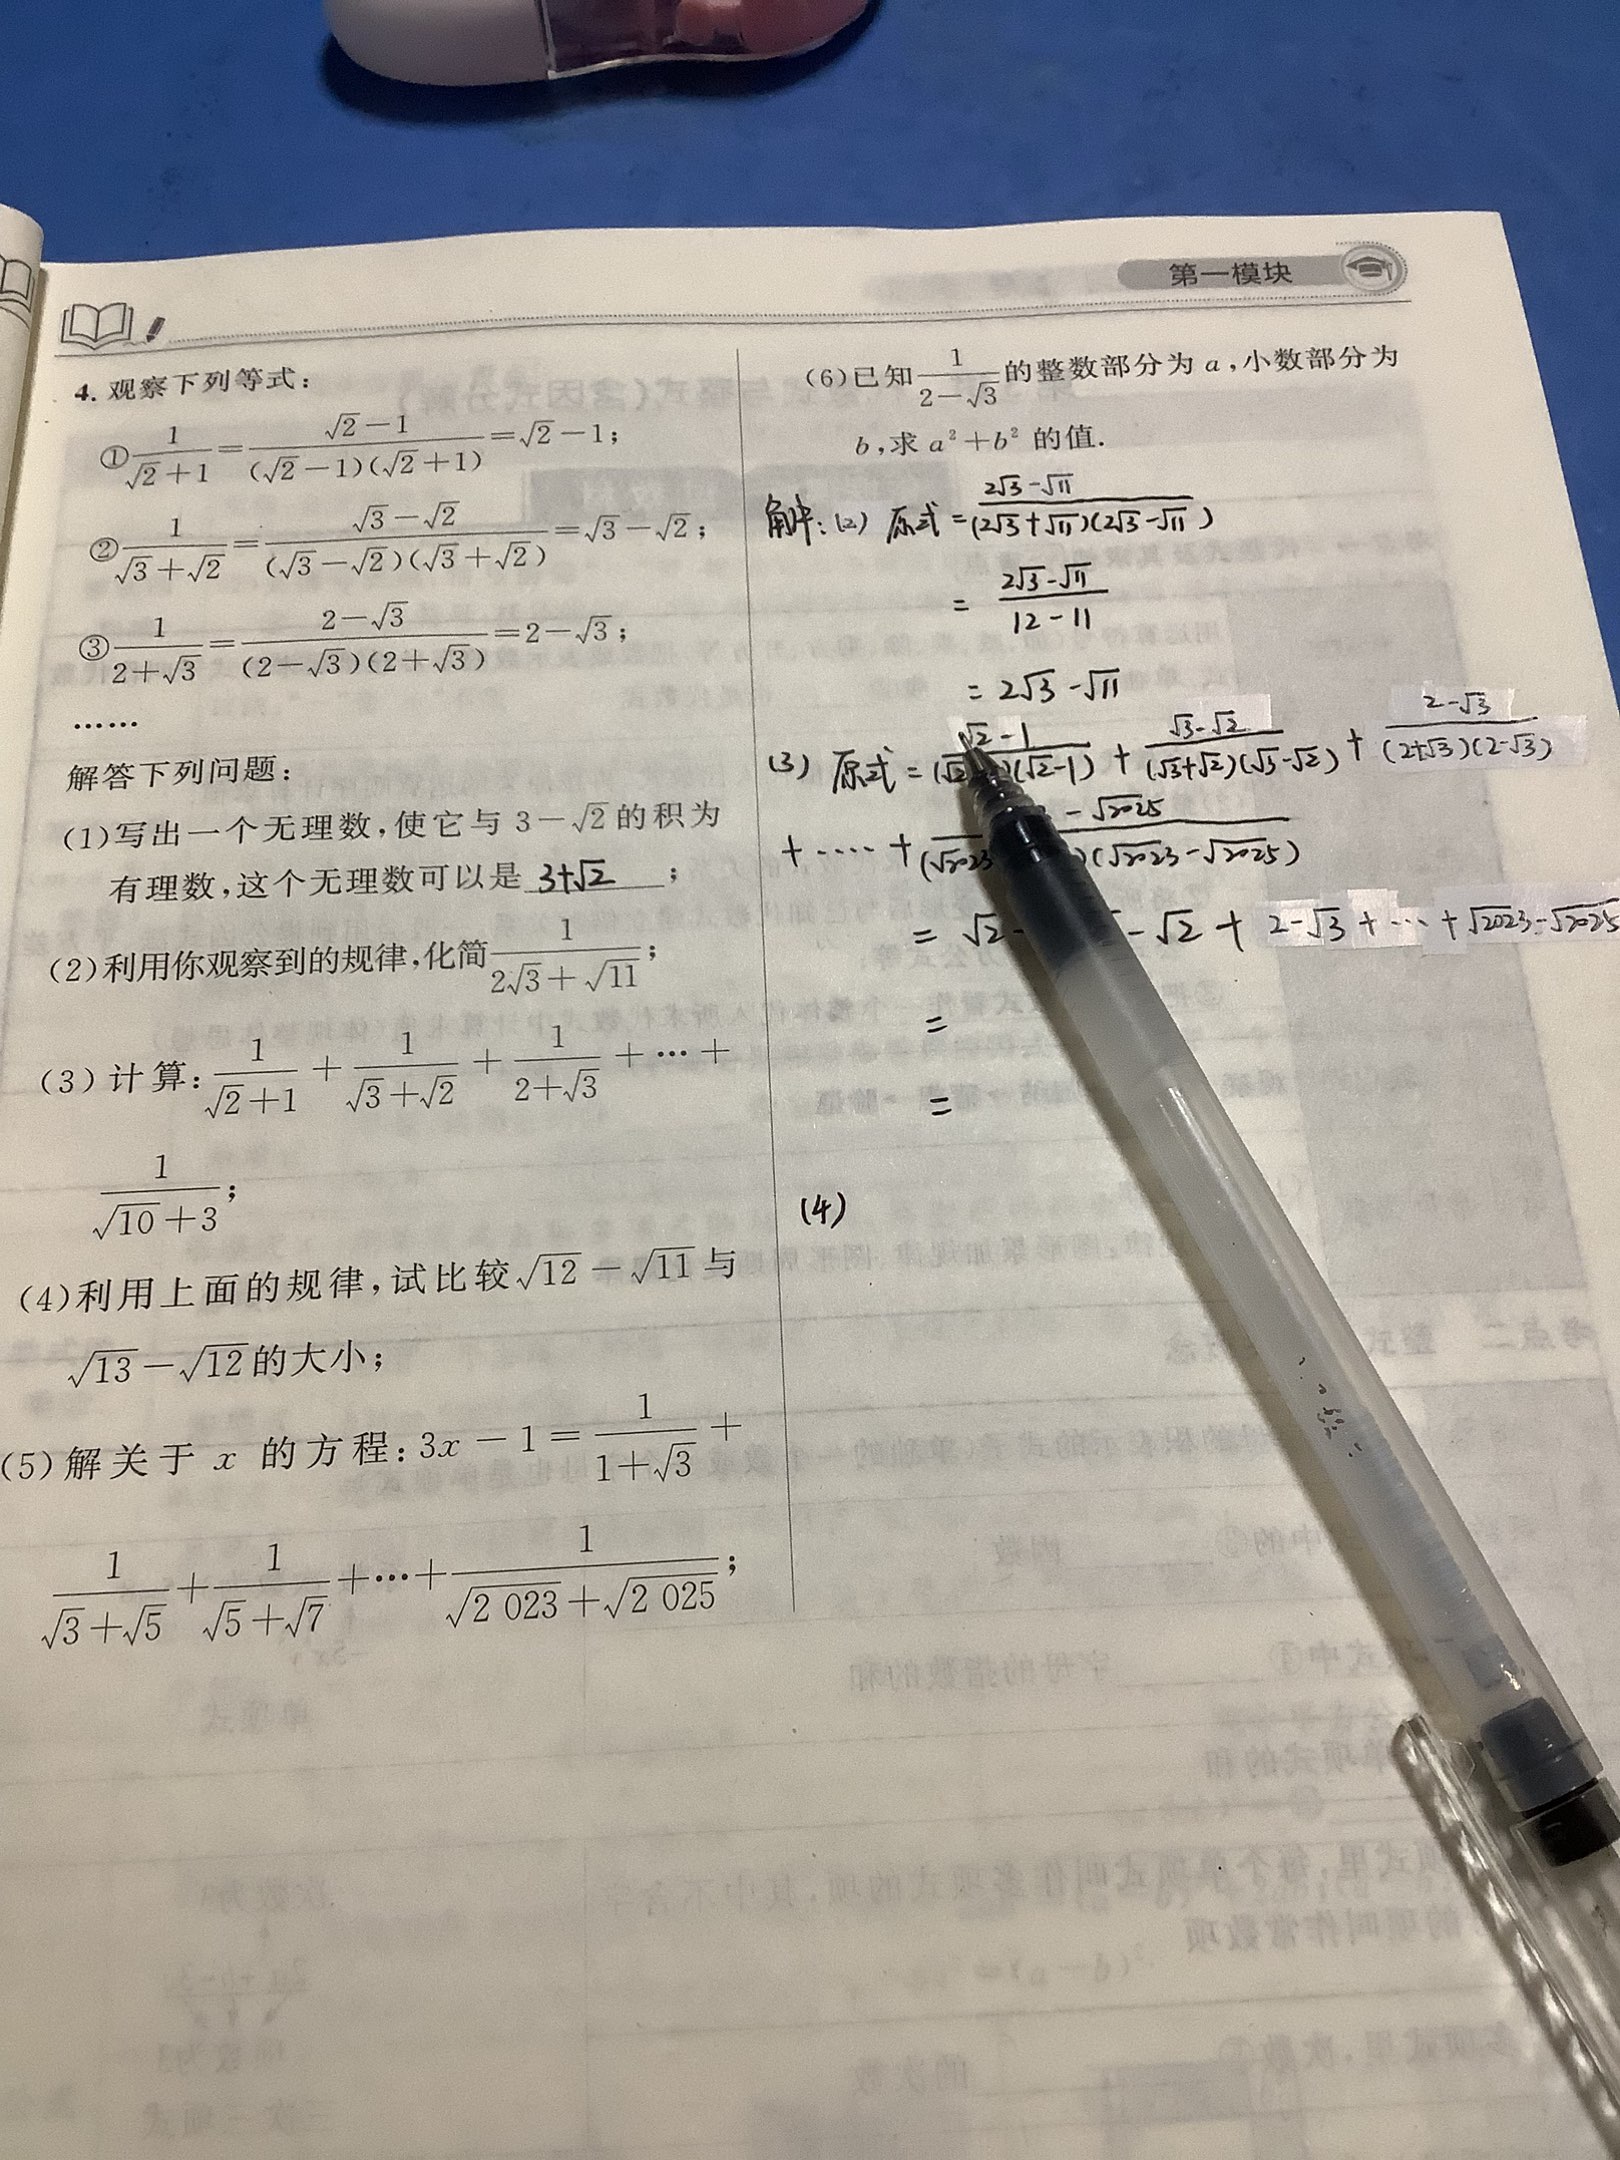 第一模块
4. 观察下列等式:
①1/(√2+1)=(√2-1)/((√2-1)(√2+1))=√2-1;
②1/(√3+√2)=(√3-√2)/((√3-√2)(√3+√2))=√3-√2;
③1/(2+√3)=(2-√3)/((2-√3)(2+√3))=2-√3;
……
解答下列问题:
(1)写出一个无理数,使它与3-√2的积为
有理数,这个无理数可以是 3+√2 ;
(2)利用你观察到的规律,化简1/(2√3+√11);
(3)计算:1/(√2+1)+1/(√3+√2)+1/(2+√3)+…+
1/(√10+3);
(4)利用上面的规律,试比较√12-√11与
√13-√12的大小;
(5)解关于x的方程:3x-1=1/(1+√3)+
1/(√3+√5)+1/(√5+√7)+…+1/(√2 023+√2 025);
(6)已知1/(2-√3)的整数部分为a,小数部分为
b,求a²+b²的值.
解:(2) 原式=(2√3-√11)/((2√3+√11)(2√3-√11))
=(2√3-√11)/(12-11)
=2√3-√11
(3) 原式=(√2-1)/((√2 )(√2-1))+(√3-√2)/((√3+√2)(√3-√2))+(2-√3)/((2+√3)(2-√3))
+····+( -√2025)/((√2023 )(√2023-√2025))
=√2- -√2+2-√3+…+√2023-√2025
=
=
(4)